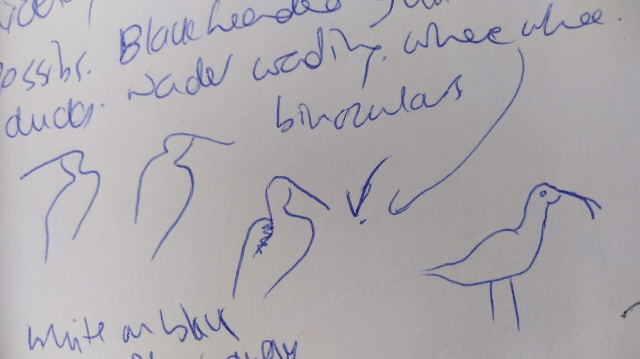 Possibs. Blackheaded
ducks. wader wading. whee whee.
binoculars
white on black